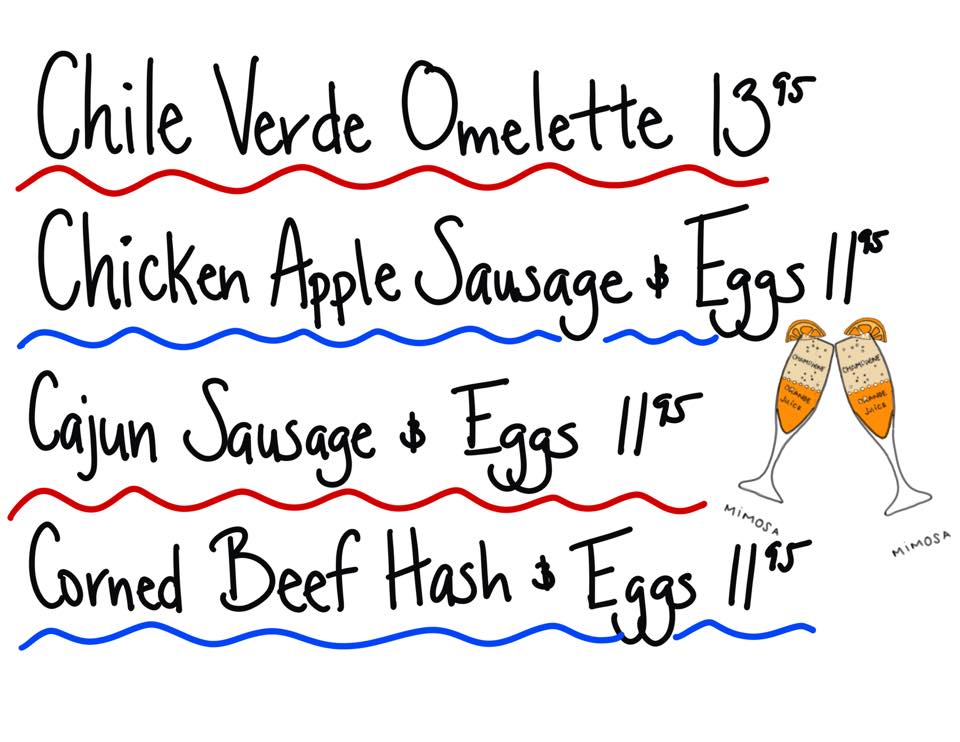 Chile Verde Omelette 13⁹⁵
Chicken Apple Sausage & Eggs 11⁹⁵
Cajun Sausage & Eggs 11⁹⁵
Corned Beef Hash & Eggs 11⁹⁵
CHAMPAGNE
ORANGE
JUICE
CHAMPAGNE
ORANGE
JUICE
MIMOSA
MIMOSA